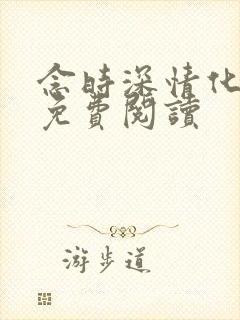 念時深情化
免費閱讀
游步道